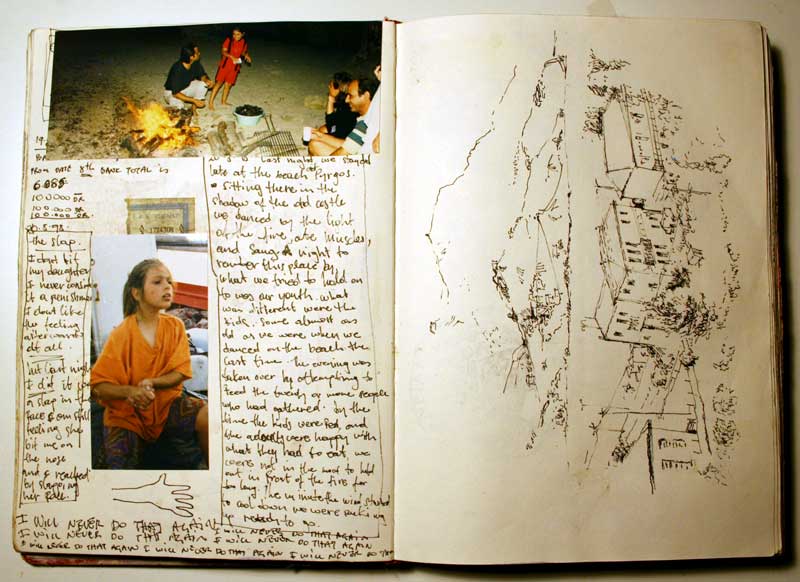 FROM DATE 8th BANK TOTAL is
6.085
100.000 DR
100.000 DR
100.000 DR
the slap.
I dont hit
my daughter
I never consider
it a penishment
I dont like
the feeling
afterwards
at all.
but last night
I did it
a slap in the
face & am still
feeling she
bit me on
the nose
and I reacted
by slapping
her face.
last night we stayed
late at the beach Pyrgos.
Sitting there in the
shadow of the old castle
we danced by the light
of the fire, ate muscles,
and sang A night to
remember this place by.
what we tried to hold on
to was our youth. what
was different were the
kids. Some almost as
old as we were when we
danced on the beach the
last time. The evening was
taken over by attempting to
feed the twenty or more people
who had gathered. by the
time the kids were fed and
the adults were happy with
what they had to eat we
were not in the mood to hold
out in front of the fire for
too long. The minute the wind started
to cool down we were packing
up ready to go.
I WILL NEVER DO THAT AGAIN I WILL NEVER DO THAT AGAIN
I WILL NEVER DO THAT AGAIN I WILL NEVER DO THAT AGAIN
I WILL NEVER DO THAT AGAIN I WILL NEVER DO THAT AGAIN I WILL NEVER DO THAT